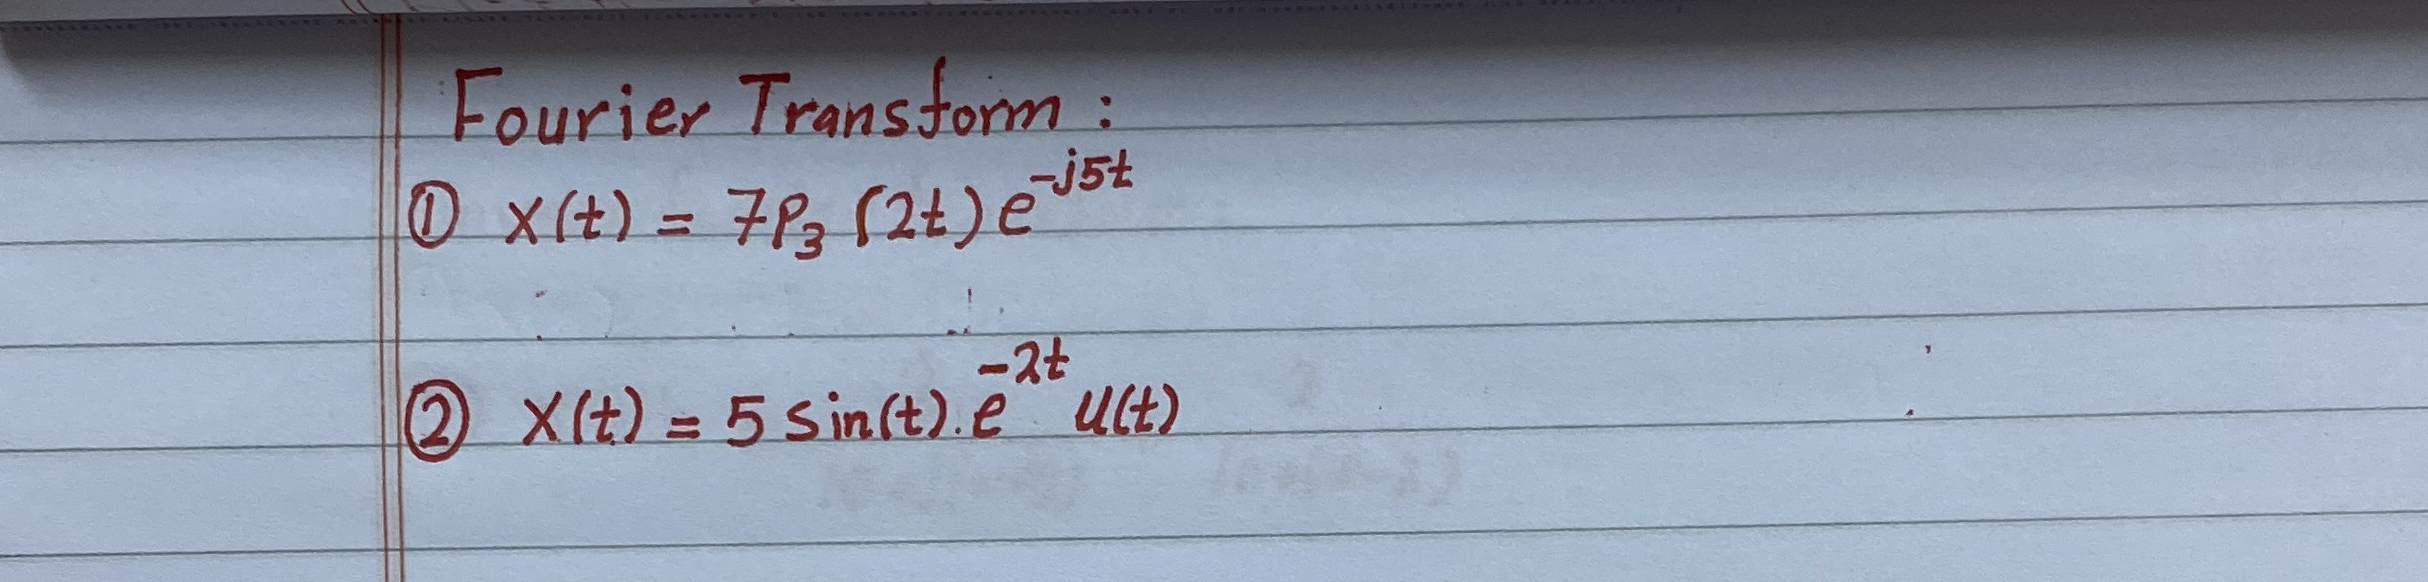 Fourier Transform :
① x(t) = 7p₃ (2t) e^{-j5t}
② x(t) = 5 sin(t) . e^{-2t} u(t)